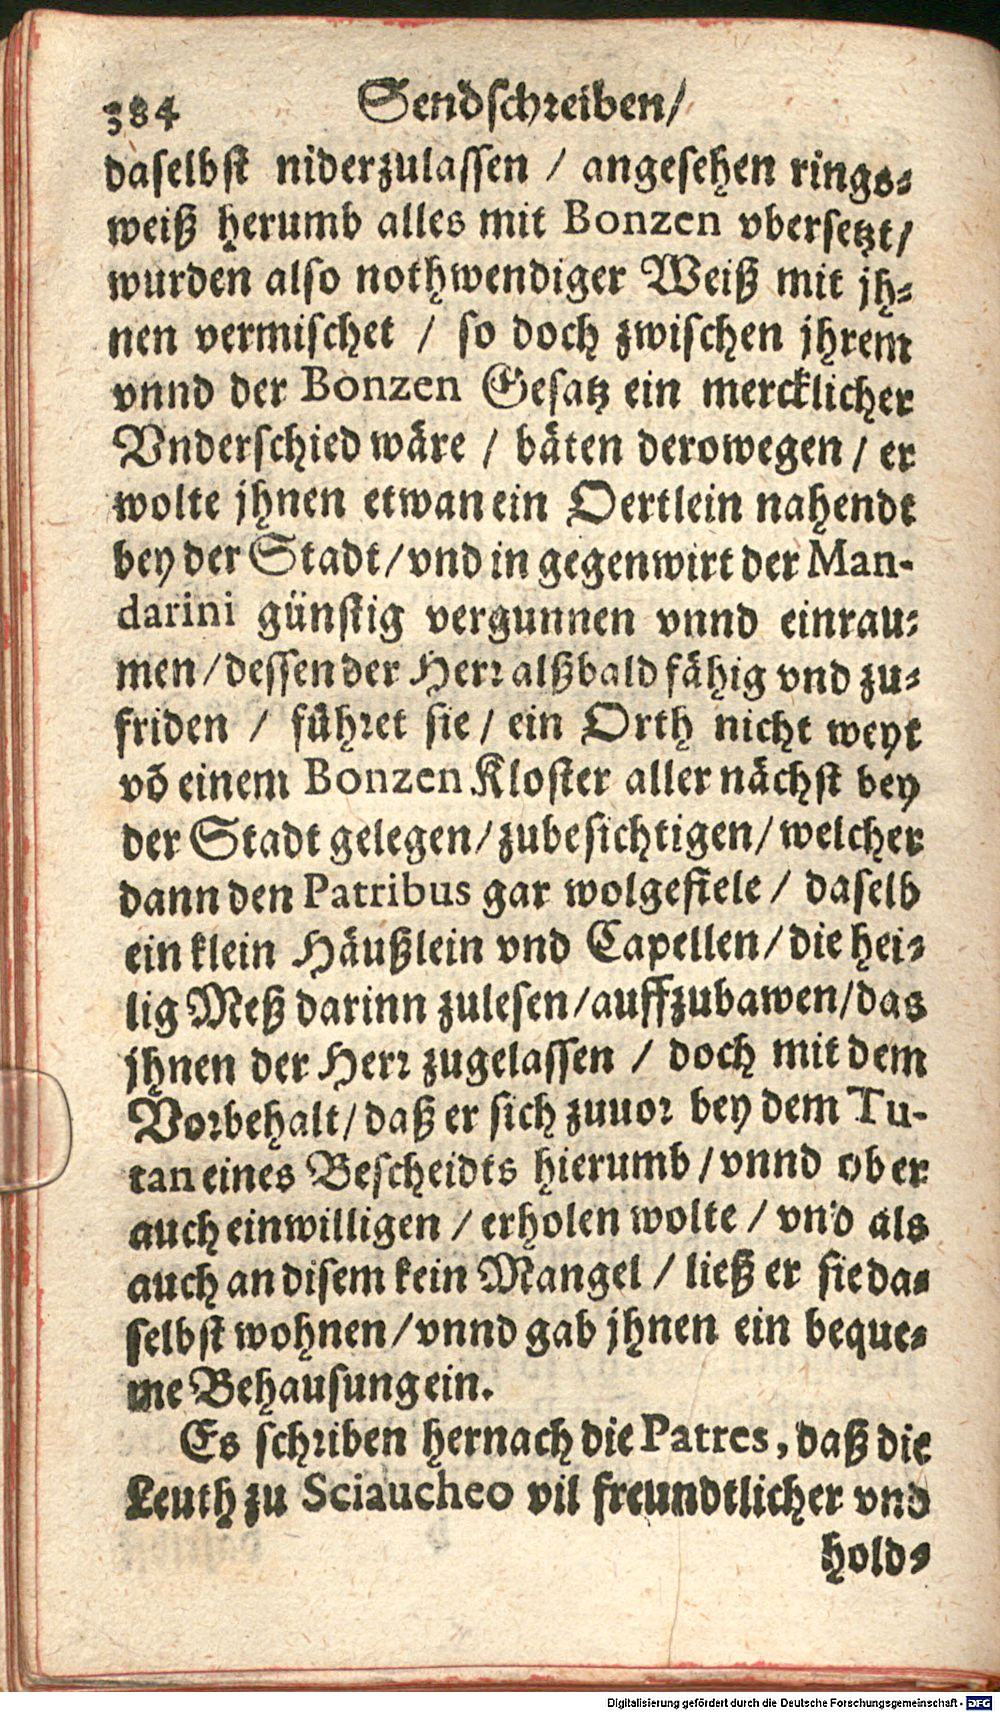 384 Sendschreiben/
daselbst niderzulassen / angesehen rings-
weiß herumb alles mit Bonzen vbersetzt/
wurden also nothwendiger Weiß mit jh-
nen vermischet / so doch zwischen jhrem
vnnd der Bonzen Gesatz ein mercklicher
Vnderschied wäre / bäten derowegen / er
wolte jhnen etwan ein Oertlein nahendt
bey der Stadt/vnd in gegenwirt der Man-
darini günstig vergunnen vnnd einrau-
men/dessen der Herr alßbald fähig vnd zu-
friden / führet sie / ein Orth nicht weyt
võ einem Bonzen Kloster aller nächst bey
der Stadt gelegen/zubesichtigen/welcher
dann den Patribus gar wolgefiele / daselb
ein klein Häußlein vnd Capellen/die hei-
lig Meß darinn zulesen/auffzubawen/das
jhnen der Herr zugelassen / doch mit dem
Vorbehalt/daß er sich zuuor bey dem Tu-
tan eines Bescheidts hierumb/vnnd ob er
auch einwilligen / erholen wolte / vnd als
auch an disem kein Mangel / ließ er sie da-
selbst wohnen/vnnd gab jhnen ein beque-
me Behausung ein.
Es schriben hernach die Patres, daß die
Leuth zu Sciaucheo vil freundtlicher vnd
hold-
Digitalisierung gefördert durch die Deutsche Forschungsgemeinschaft - DFG